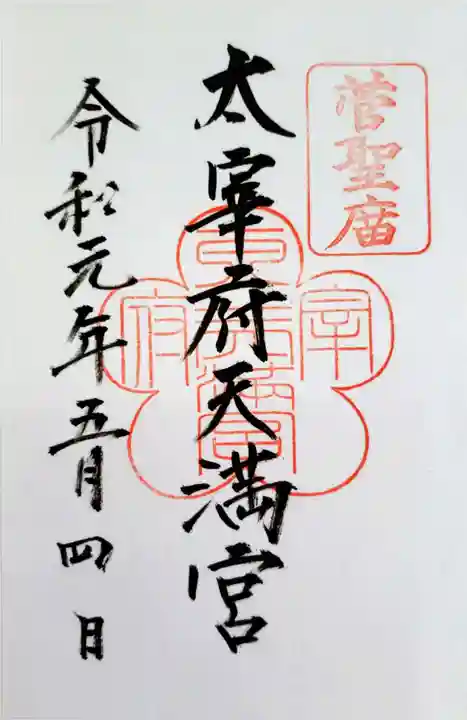 菅聖廟
太宰府天満宮
令和元年五月四日